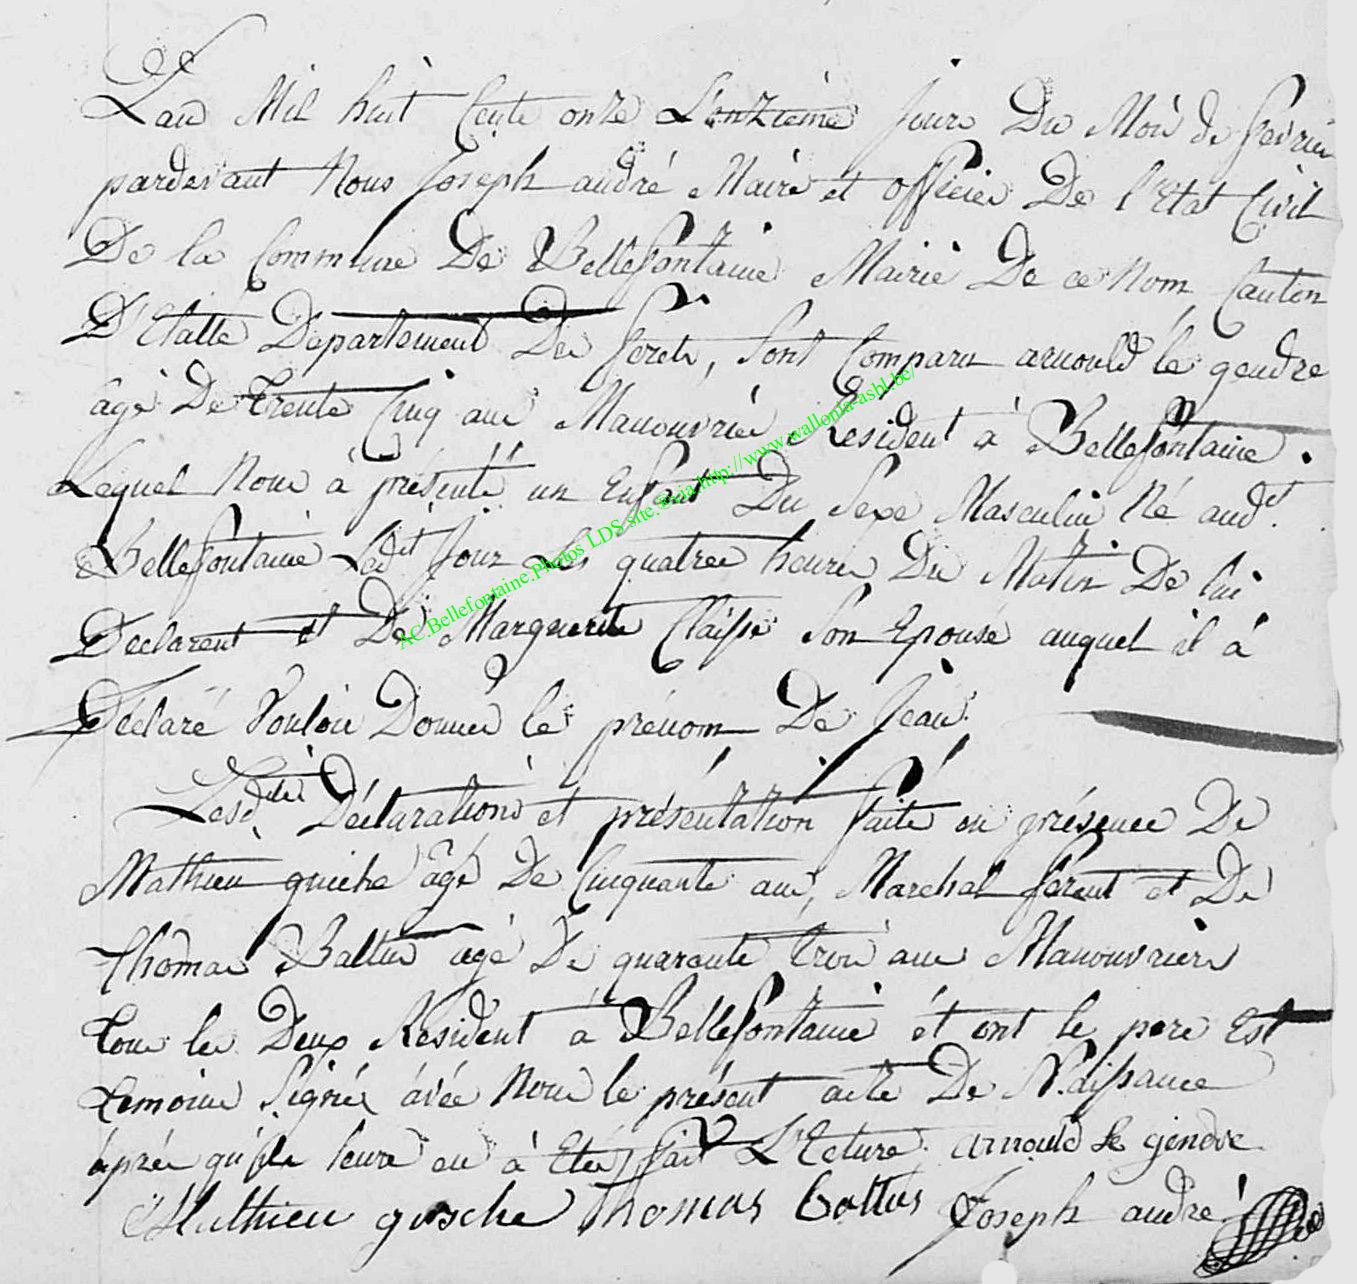 L'an Mil huit Cente onze L'onzième Jour Du Moi de Fevrier
pardevant Nous Joseph andré Maire et officier De l'Etat Civil
De la Commune De Bellefontaine Mairie De ce Nom Canton
D'Etalle Departement De forets, Sont Comparu arnould le gendre
agé De Trente Cinq ans Manouvrier Resident à Bellefontaine.
Lequel Nous à présenté un Enfant Du Sexe Masculin Né audit
Bellefontaine Ledit Jour les quatree heures Du Matin De lui
Declarent et De Marguerite Claisse Son Epouse auquel il à
Déclaré Vouloir Donner le prénom De Jean
Lesdites Déclarations et présentation faite en présence De
Mathieu guiche âgé De Cinquante ans, Marchal ferent et De
Thomas Baltus agé De quarante troi ans Manouvriers
tous les Deux Resident à Bellefontaine ét ont le pere Est
temoins Signés avec Nous le présent acte De Naissance
après qu'ils leurs en à Etée fait L'Ecture arnould le gendre
Mathieu gusche Thomas baltus Joseph andré
AC.Bellefontaine.Photos LDS site. via http://www.wallonia-asbl.be/